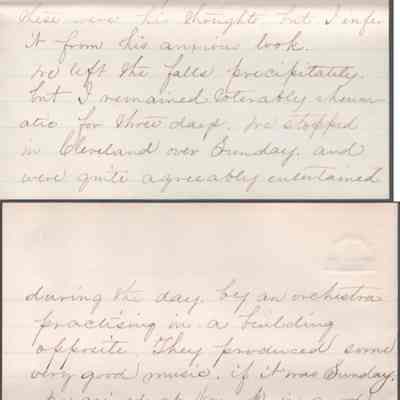 these were his thoughts but I infer
it from his anxious look.
We left the falls precipitately.
but I remained tolerably rheum-
atic for three days. We stopped
in Cleveland over Sunday. and
were quite agreeably entertained
during the day. by an orchestra
practising in a building
opposite. They produced some
very good music, if it was Sunday.
in good